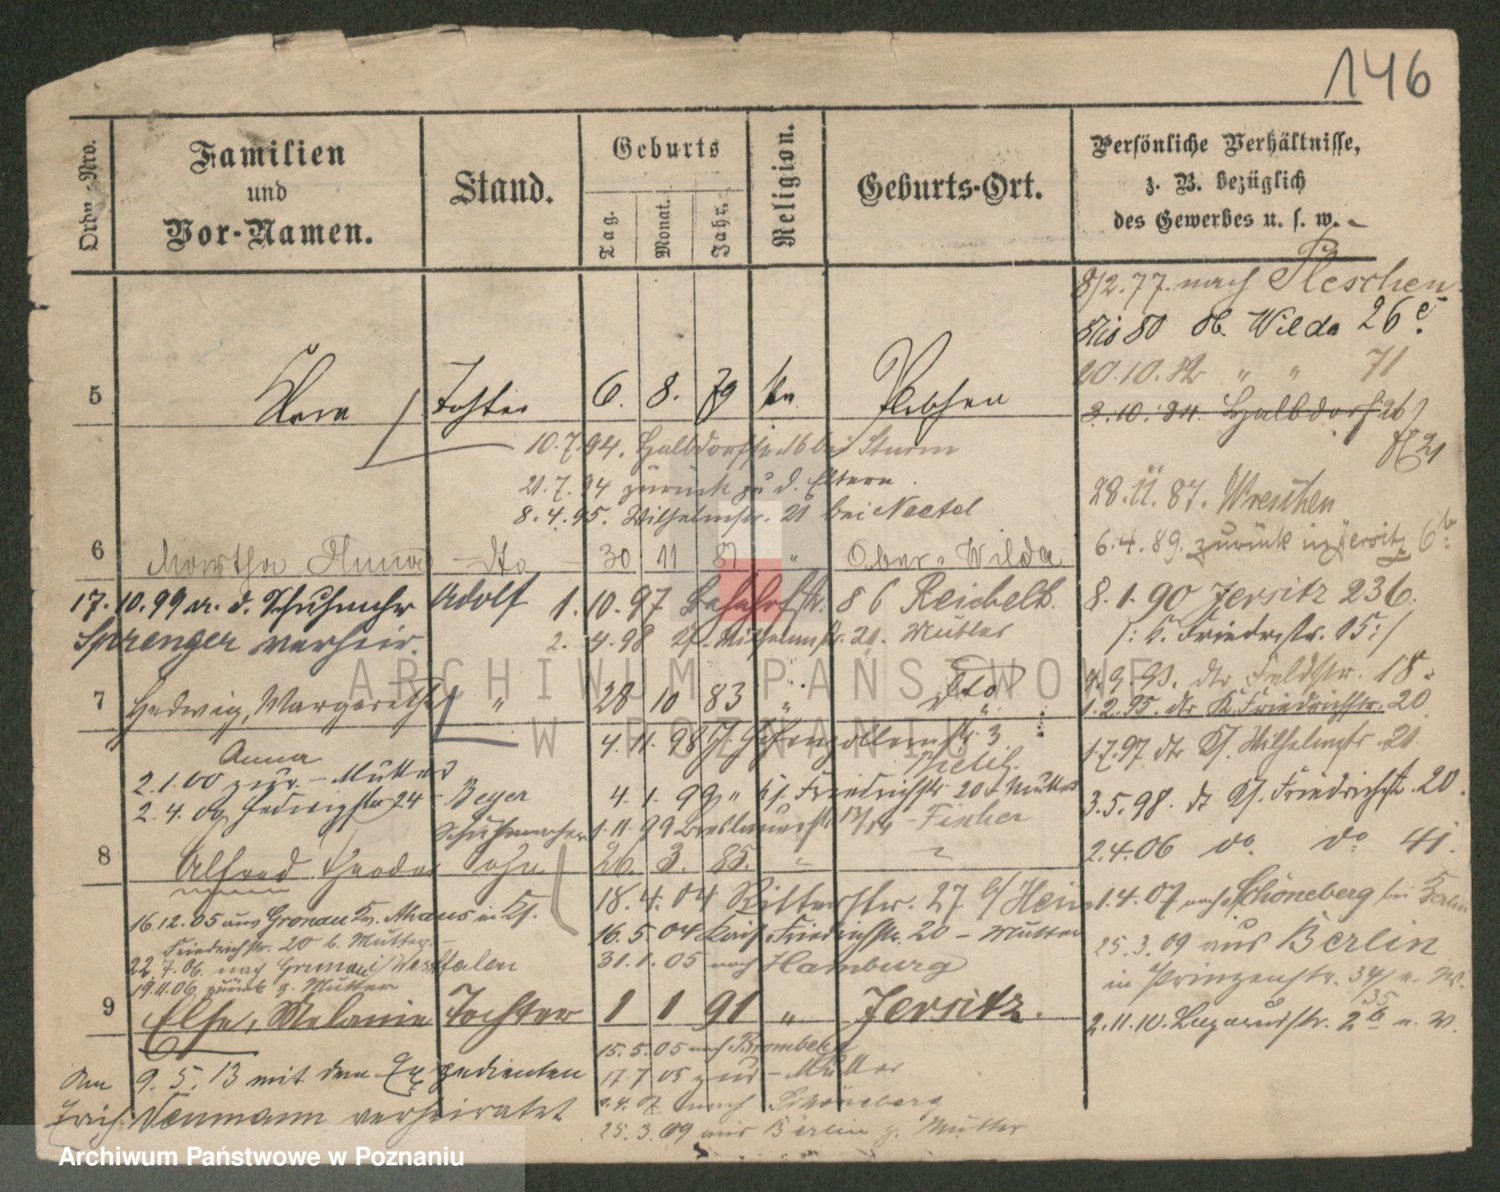 146
Ordn.-Nro.
Familien
und
Vor-Namen.
Stand.
Geburts
Tag.
Monat.
Jahr.
Religion.
Geburts-Ort.
Persönliche Verhältnisse,
z. B. bezüglich
des Gewerbes u. s. w.
8/2.77. nach Pleschen
80 Ob. Wilda 26 c.
20.10.82 " " 71
2.10.84. Halbdorfstr 26
21
28.11.87. Wreschen
6.4.89. zurück in Jersitz 6 b.
8.1.90 Jersitz 236.
/: K. Friedrichstr. 05 :/
4.9.93. dto Feldstr. 18.
1.2.95. dto K. Friedrichstr. 20
1.7.97. dto Kf. Wilhelmstr. 21.
3.5.98. dto Kf. Friedrichstr. 20.
2.4.06 do. do 41.
1.4.07 nach Schöneberg bei Berlin
25.3.09 aus Berlin
in Prinzenstr. 34/35 n. W.
2.11.10. Lazarusstr. 2 b n. W.
5
Tochter 6. 8. 79
10.7.94. Halbdorfstr. 16 bei Sturm
21.7.94 zurück zu d. Eltern.
8.4.95. Wilhelmstr. 21 bei Neetel
6 Martha Anna dto 30 11 81 " Ober-Wilda
17.10.99 a. d. Schuhmchr Adolf
Sprenger verheir.
1.10.97 Bahnhofstr. 86 Reichelt.
2.4.98 Kf. Wilhelmstr. 21. Mutter
7 Hedwig, Margarethe " 28 10 83 " dto
Anna
4.11.98 Hohenzollernstr. 3
2.1.00 zur. - Mutter
2.4.00 Hedwigstr 24 - Beyer
Schuhmacher
4.1.99 " Kf. Friedrichstr. 20 Mutter
1.11.99 Breslauerstr. 13/14 - Fischer
8 Alfred Theodor Sohn 26. 3. 85. "
18.4.04 Ritterstr. 27 b/ Hein
16.12.05 aus Gronau Kr. Ahaus in Kf.
Friedrichstr. 20 b. Mutter. -
16.5.04 Kais. Friedrichstr. 20 - Mutter
31.1.05 nach Hamburg
22.7.06. nach Gronau i/Westfalen
19.11.06 zurück z. Mutter
9 Else, Melanie Tochter 1 1 91 " Jersitz.
15.5.05 nach Bromberg
17 7 05 zur. - Mutter
nach Schöneberg
25.3.09 aus Berlin z. Mutter
Am 9.5.13 mit dem Expedienten
Erich Neumann verheiratet
ARCHIWUM PAŃSTWOWE
W POZNANIU
Archiwum Państwowe w Poznaniu